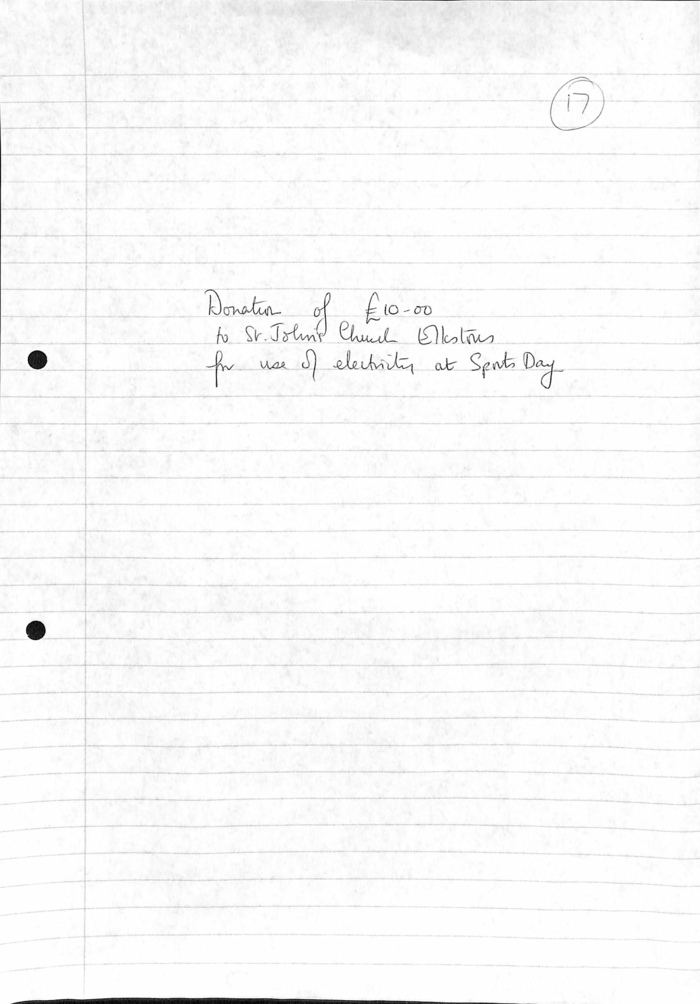 17
Donation of £10-00
to St. John's Church Elkstons
for use of electricity at Sports Day